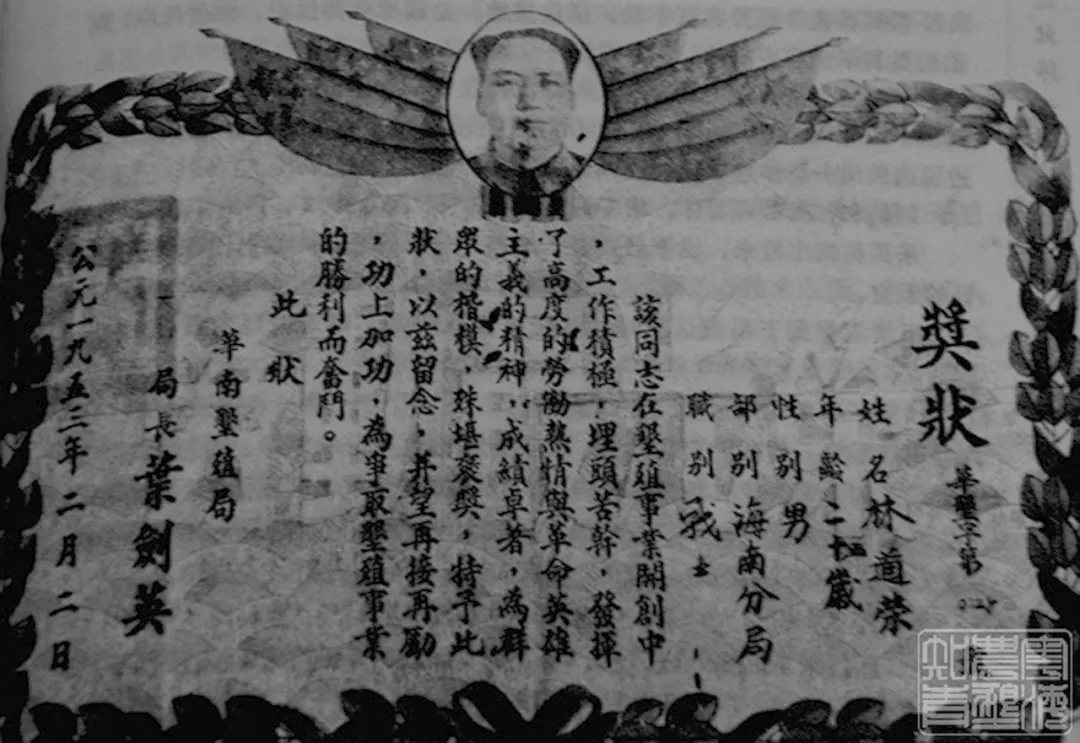 獎狀
華墾字第
姓名林適榮
年齡二十五歲
性別男
部別海南分局
職別戰士
該同志在墾殖事業開創中
，工作積極，埋頭苦幹，發揮
了高度的勞動熱情與革命英雄
主義的精神，成績卓著，為群
眾的楷模，殊堪褒獎，特予此
狀，以茲留念，并望再接再勵
，功上加功，為爭取墾殖事業
的勝利而奮鬥。
此狀
華南墾殖局
局長葉劍英
公元一九五三年二月二日